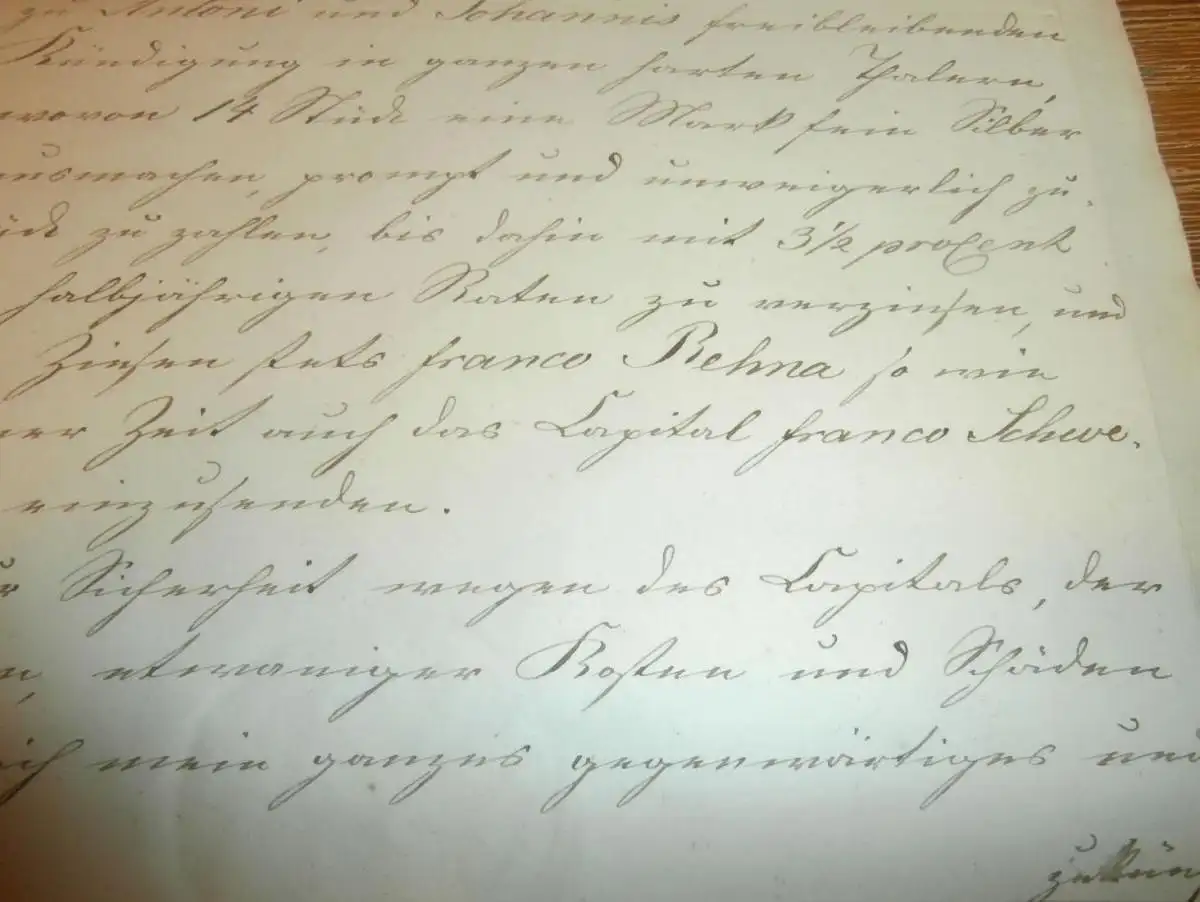 zu Antoni und Johannis freibleibenden
Kündigung in ganzen harten Thalern,
wovon 14 Stück eine Mark fein Silber
ausmachen, prompt und unweigerlich zu-
ück zu zahlen, bis dahin mit 3 1/2 proCent
halbjährigen Raten zu verzinsen, und
Zinsen stets franco Rehna so wie
ner Zeit auch das Capital franco Schwe-
einzusenden.
r Sicherheit wegen des Capitals, der
n, etwaniger Kosten und Schäden
ich mein ganzes gegenwärtiges und
zukün